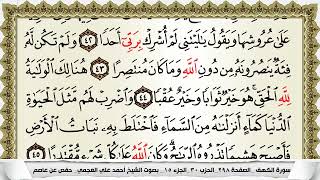 عَلَىٰ عُرُوشِهَا وَيَقُولُ يَٰلَيْتَنِي لَمْ أُشْرِكْ بِرَبِّيٓ أَحَدٗا ٤٢ وَلَمْ تَكُن لَّهُۥ
فِئَةٞ يَنصُرُونَهُۥ مِن دُونِ ٱللَّهِ وَمَا كَانَ مُنتَصِرًا ٤٣ هُنَالِكَ ٱلْوَلَٰيَةُ
لِلَّهِ ٱلْحَقِّ هُوَ خَيْرٞ ثَوَابٗا وَخَيْرٌ عُقْبٗا ٤٤ وَٱضْرِبْ لَهُم مَّثَلَ ٱلْحَيَوٰةِ
ٱلدُّنْيَا كَمَآءٍ أَنزَلْنَٰهُ مِنَ ٱلسَّمَآءِ فَٱخْتَلَطَ بِهِۦ نَبَاتُ ٱلْأَرْضِ
فَأَصْبَحَ هَشِيمٗا تَذْرُوهُ ٱلرِّيَٰحُ وَكَانَ ٱللَّهُ عَلَىٰ كُلِّ شَيْءٖ مُّقْتَدِرًا ٤٥
سورة الكهف . الصفحة ٢٩٨ الحزب ٣٠ . الجزء ١٥ . بصوت الشيخ أحمد علي العجمي . حفص عن عاصم